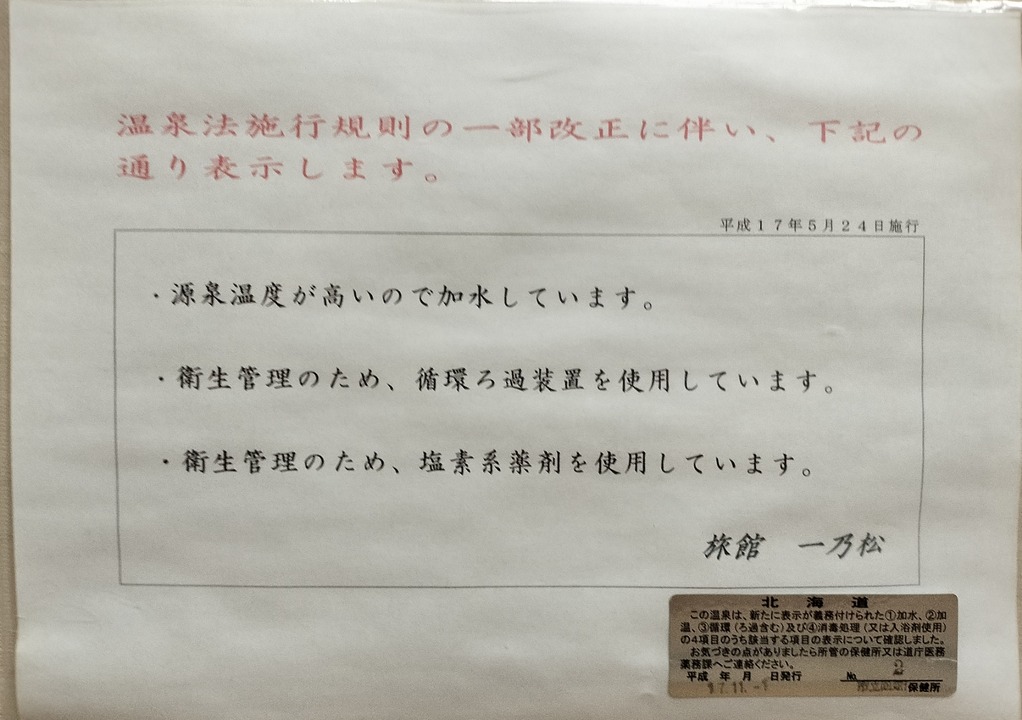 温泉法施行規則の一部改正に伴い、下記の
通り表示します。
平成１７年５月２４日施行
・源泉温度が高いので加水しています。
・衛生管理のため、循環ろ過装置を使用しています。
・衛生管理のため、塩素系薬剤を使用しています。
旅館　一乃松
北海道
この温泉は、新たに表示が義務付けられた①加水、②加
温、③循環（ろ過含む）及び④消毒処理（又は入浴剤使用）
の4項目のうち該当する項目の表示について確認しました。
お気づきの点がありましたら所管の保健所又は道庁医務
薬務課へご連絡ください。
平成　年　月　日発行　No. 2
17.11.　保健所